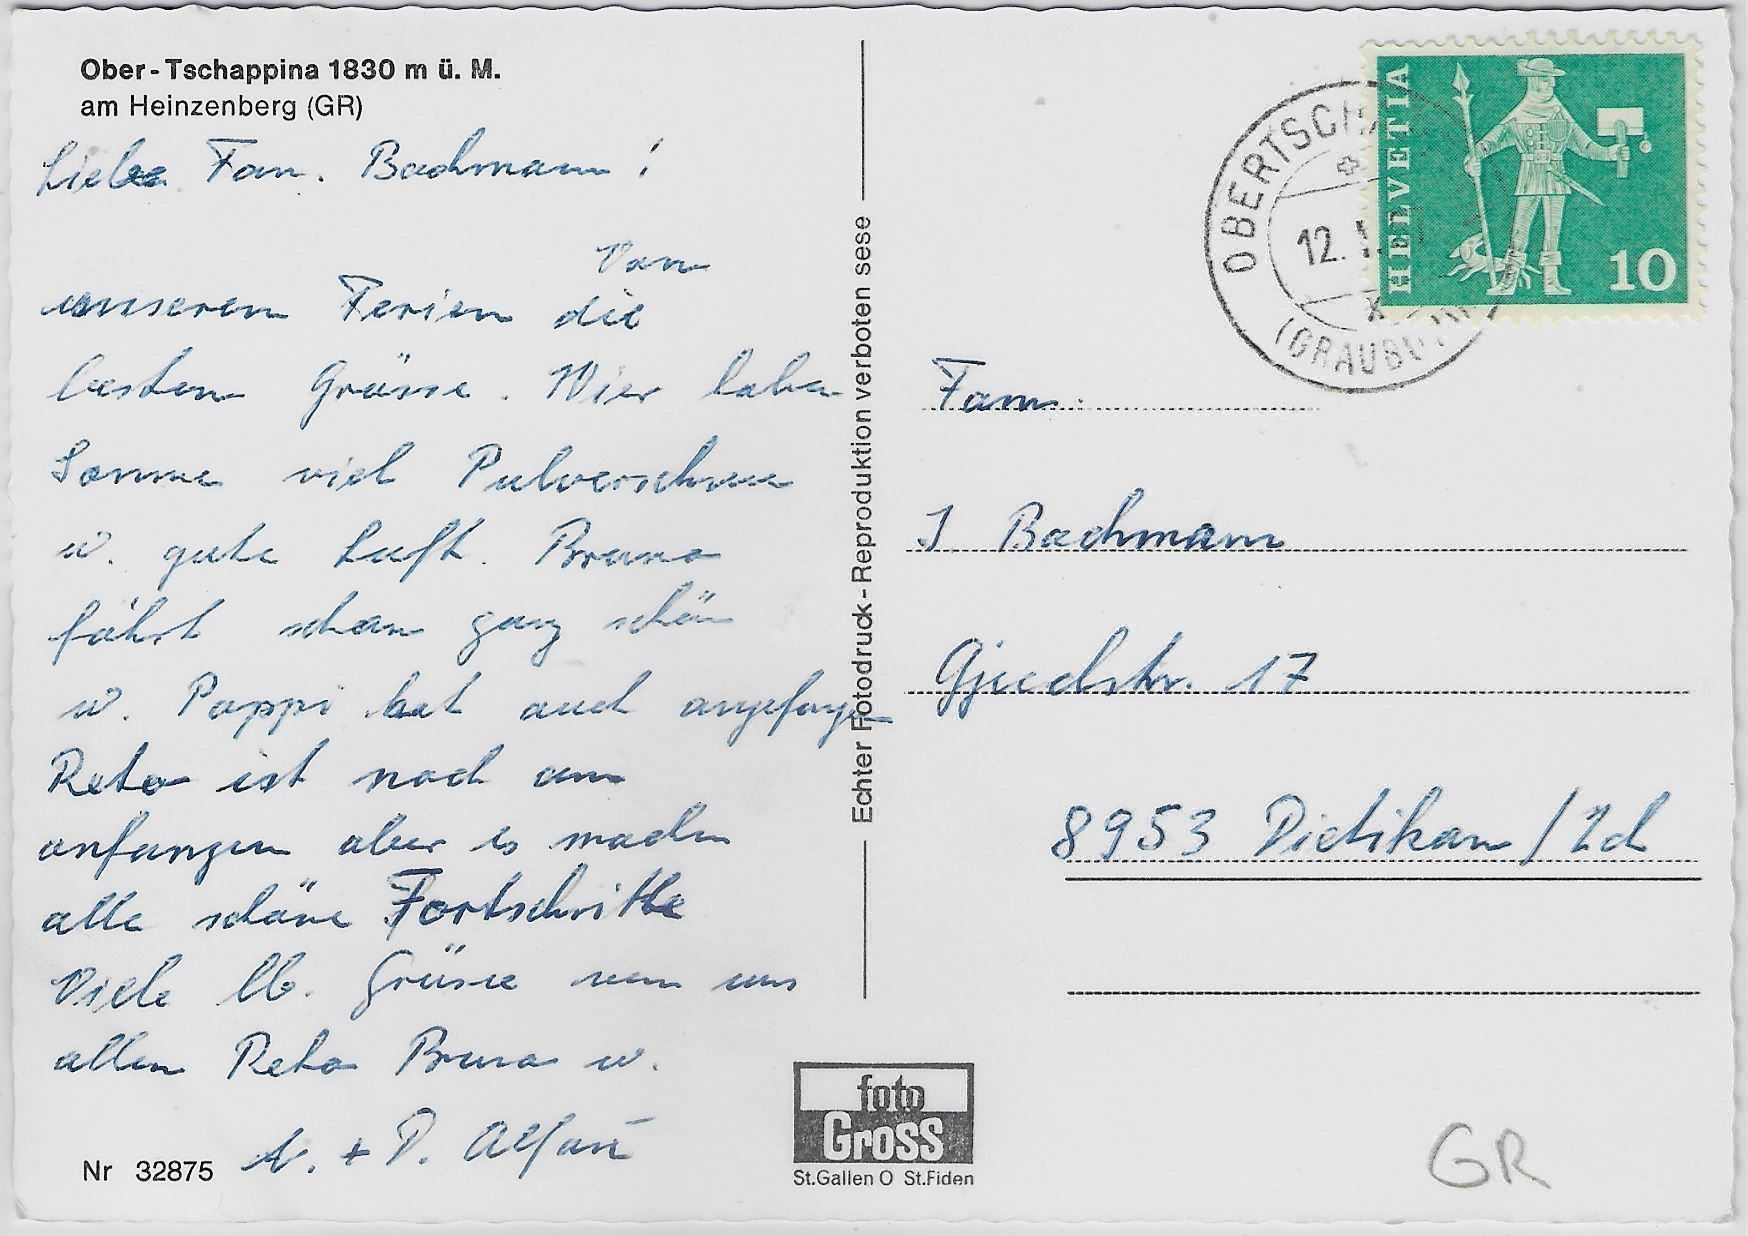 Ober-Tschappina 1830 m ü. M.
am Heinzenberg (GR)
Liebe Fam. Bachmann!
Von
unseren Ferien die
besten Grüsse. Wier haben
Sonne viel Pulverschnee
u. gute Luft. Bruno
fährt schon ganz schön
u. Pappi hat auch angefangen
Reto ist noch am
anfangen aber es machen
alle schöne Fortschritte
Viele lb. Grüsse von uns
allen Reto Bruno u.
+ P.
Nr 32875
Echter Fotodruck - Reproduktion verboten sese
foto
Gross
St.Gallen O St.Fiden
HELVETIA
10
OBERTSCHA
12.
(GRAUBÜ
Fam.
J Bachmann
Gjuchstr. 17
8953 Dietikon / Zch
GR